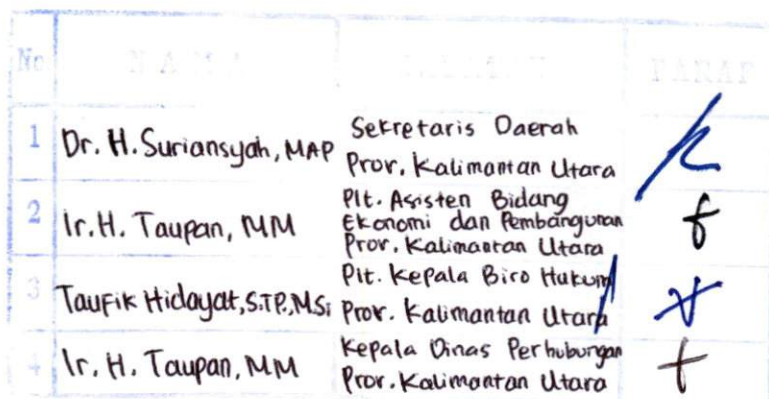 No NAMA JABATAN PARAF
1 Dr. H. Suriansyah, MAP Sekretaris Daerah
Prov. Kalimantan Utara
2 Ir. H. Taupan, MM Plt. Asisten Bidang
Ekonomi dan Pembangunan
Prov. Kalimantan Utara
3 Taufik Hidayat, S.TP., M.Si Plt. Kepala Biro Hukum
Prov. Kalimantan Utara
4 Ir. H. Taupan, MM Kepala Dinas Perhubungan
Prov. Kalimantan Utara